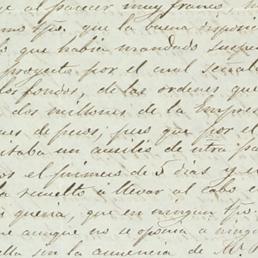 al parecer muy franco,
tpo. que la buena
que habia mandado suspe
proyecto por el cual se
fondos, de las ordenes que
dos millones de la Empres
es de pesos; pues que por el
itaba un ausilio de otra pa
el primero de 5 dias y
la resuelto a llevar al cabo e
queria, que en ningun tpo.
e aunque no se oponia a ningu
en la ausencia de Mr.